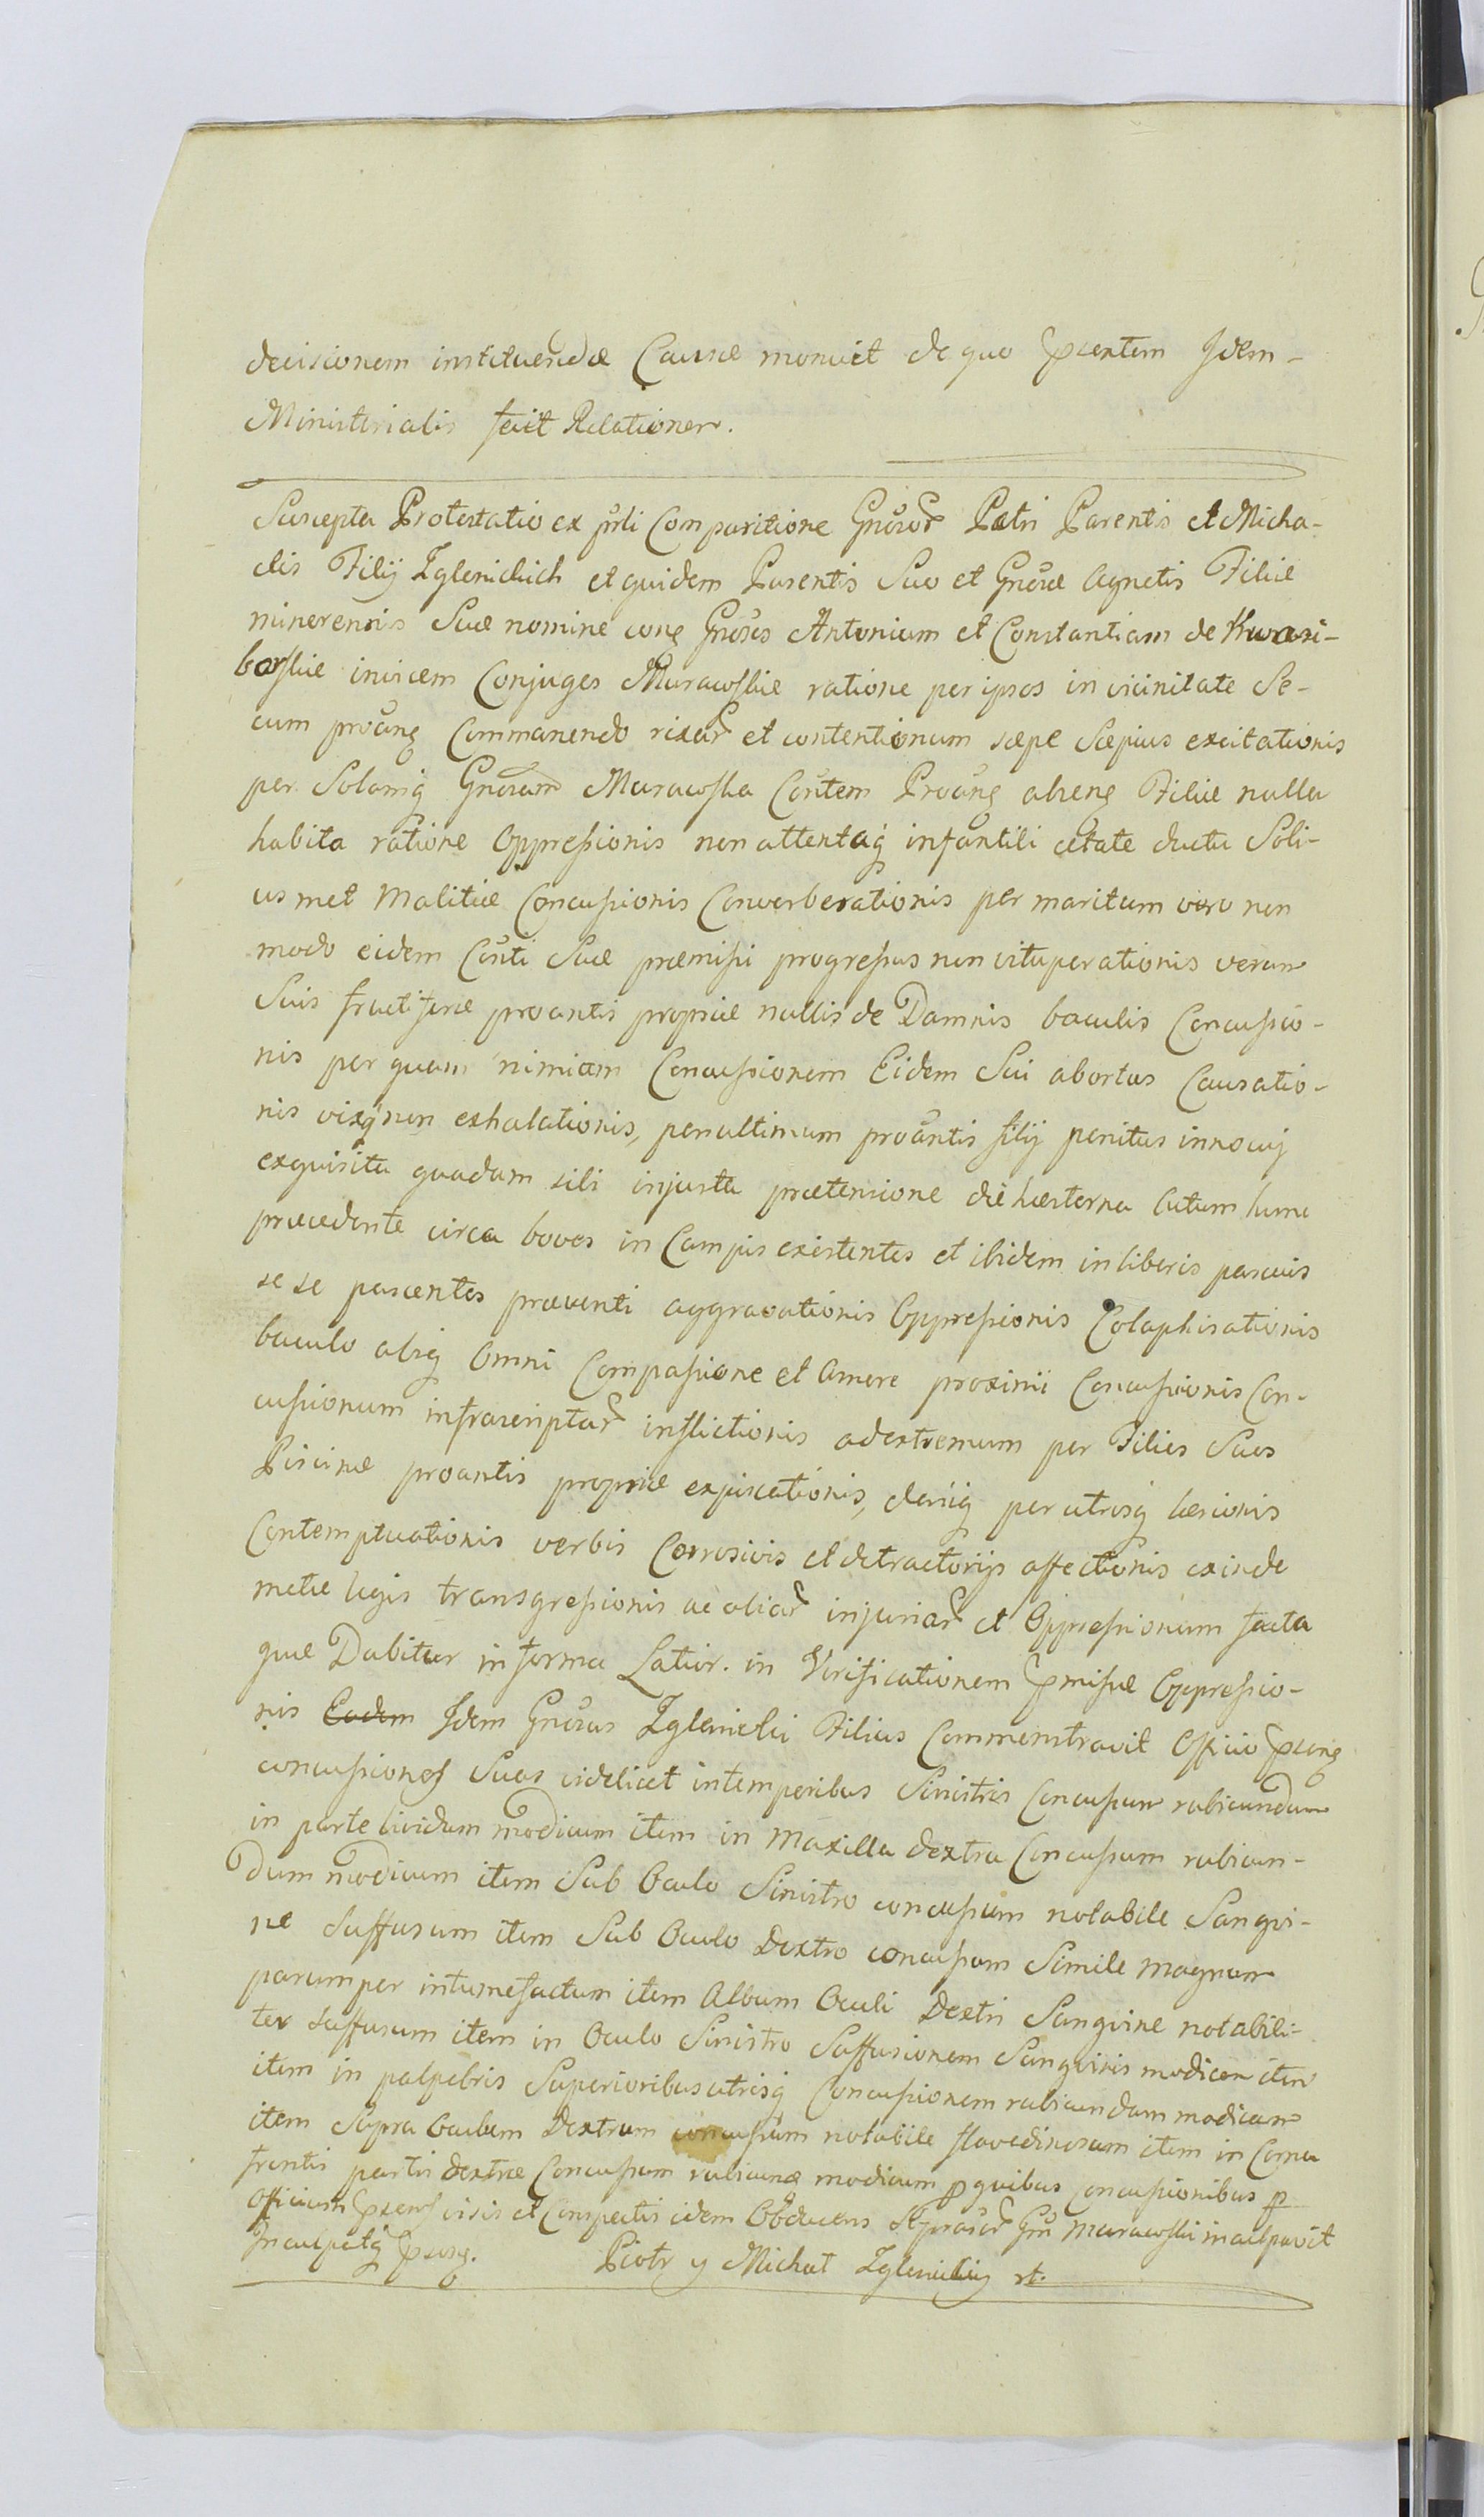 decisionem instituendæ Causæ monuit de quo præsentem Idem-
Ministerialis fecit Relationem.
Suscepta Protestatio ex prli Comparitione Gnrosor Petri Parentis et Micha-
elis Filij Zglenickich et quidem Parentis Suo et Gnrosæ Agnetis Filiæ
minorennis Suæ nomine cong Gnrosos Antonium et Constantiam de Krwosi-
borskie invicem Conjuges Murawskie ratione per ipsos in vicinitate Se-
cum proang Commanendo rixar et contentionum sæpe Sæpius excitationis
per Solamq Gnrosam Murawska Contem Proang abseng Filiæ nulla
habita ratione Oppressionis non attentaq infantili ætate ducta Soli-
us met Malitiæ Concussionis Converberationis per maritum vero non
modo eidem Conti Suæ præmissi progressus non vituperationis verum
Suis fructiferæ proantis propriæ nullis de Damnis baculis Concussio-
nis per quam nimiam Concussionem Eidem Sui abortus Causatio-
nis vixq non exhalationis, penultimum proantis filij penitus innocuj
exquisita quadam sibi injusta prætensione die hæsterna actum hunc
præcedente circa boves in Campis existentes et ibidem in liberis pascuis
se se pascentes præventi aggravationis Oppressionis Colaphisationis
baculo absq Omni Compassione et Amore proximi Concussionis Con-
cussionum infrascriptar inflictionis ad extremum per Filios Suos
Piscinæ proantis propriæ expiscationis, deniq per utrosq læsionis
Contemptuationis verbis Corrosivis et detractorijs affectionis exinde
metæ legis transgressionis ac aliar injuriar et Oppressionum facta
quæ Dabitur in forma Latior. in Verificationem præmissæ Oppressio-
nis Eadem Idem Gnrosus Zglenicki Filius Commonstravit Officio præsng
concussiones Suas videlicet in temporibus Sinistris Concussum rubicundum
in parte lividum modicum item in Maxilla dextra Concussum rubicun-
dum modicum item Sub Oculo Sinistro concussum notabile Sangvi-
ne Suffusum item Sub Oculo Dextro concussum Simile magnum
parumper intumefactum item Album Oculi Dextri Sangvine notabili-
ter Suffusum item in Oculo Sinistro Suffusionem Sangvinis modicam item
item in palpebris Superioribus utrisq Concussionem rubicundam modicam
item Supra Oculum Dextrum concussum notabile flavedinosum item in Cornu
frontis partis dextræ Concussum rubicund modicum p quibus Concussionibus p
Officium præsens visis et Conspectis idem Obducens Murawski inculpavit
Inculpatq præsng. Piotr y Michał Zgleniccy